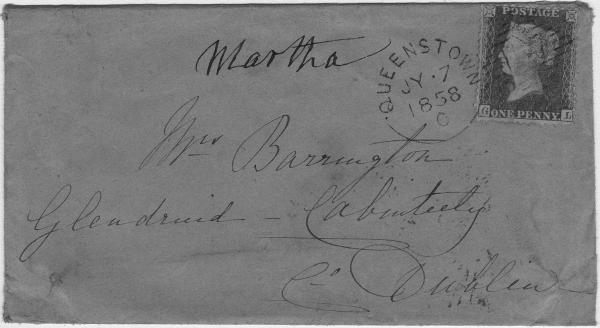 POSTAGE
Martha
QUEENSTOWN
JY . 7
1858
C
G ONE PENNY L
Mrs Barrington
Glendruid - Cabinteely
Co Dublin